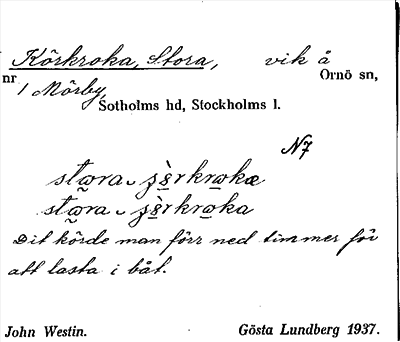 Körkroka, Stora, vik å
nr 1 Mörby, Ornö sn,
Sotholms hd, Stockholms l.
N7
Dit körde man förr ned timmer för
att lasta i båt.
John Westin. Gösta Lundberg 1937.